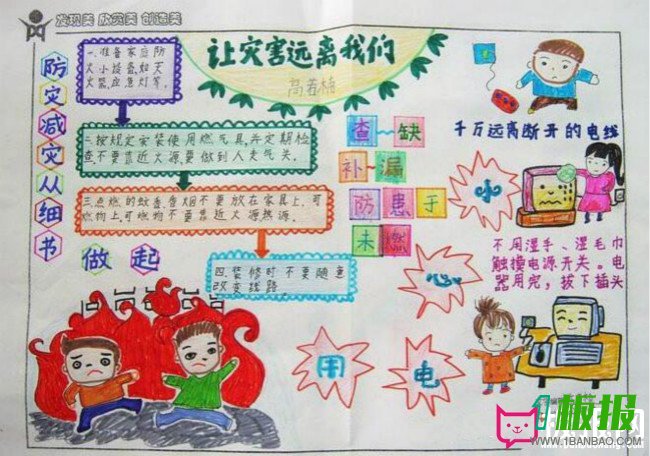 发现美 欣赏美 创造美
让灾害远离我们
防灾减灾从细节
做起
一.准备家庭防
火小设备,如灭
火器,应急灯等。
二.按规定安装使用燃气具,并定期检
查不要靠近火源要做到人走气关。
三.点燃的蚊香,香烟不要放在家具上,可
燃物上,可燃物不要靠近火源热源。
四.装修时不要随意
改变线路。
查缺
补漏
防患于
未燃
小
心
用
电
千万远离断开的电线
不用湿手、湿毛巾
触摸电源开关。电
器用完,拔下插头
1板报
WWW.1BANBAO.COM